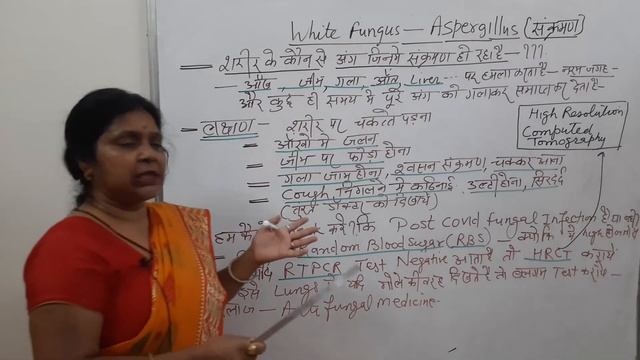 White Fungus — Aspergillus (संक्रमण)
— शरीर के कौन से अंग जिनमे संक्रमण हो रहा है — ???
— आँख, जीभ, गला, आँत, Liver... पर हमला करता है — नरम जगह
और कुछ ही समय में पूरे अंग को गलाकर समाप्त कर देता है—
— लक्षण — शरीर पर चकत्ते पड़ना
= आँखो मे जलन
= जीभ पर फोड़ा होना
= गला जाम होना, श्वसन संक्रमण, चक्कर आना
= Cough, निगलने मे कठिनाई, उल्टी होना, सिरदर्द
(तुरंत डॉक्टर को दिखायें)
High Resolution
Computed
Tomography
हम कै करेंकि Post Covid fungal Infection है या नही
Random Blood Sugar (RBS) — क्योकि ये high होता है
यदि RTPCR Test Negative आता है तो HRCT करायें
इसे Lungs मे यदि गोले की तरह दिखते है तो बलगम Test कराये—
लाज — Anti fungal medicine—